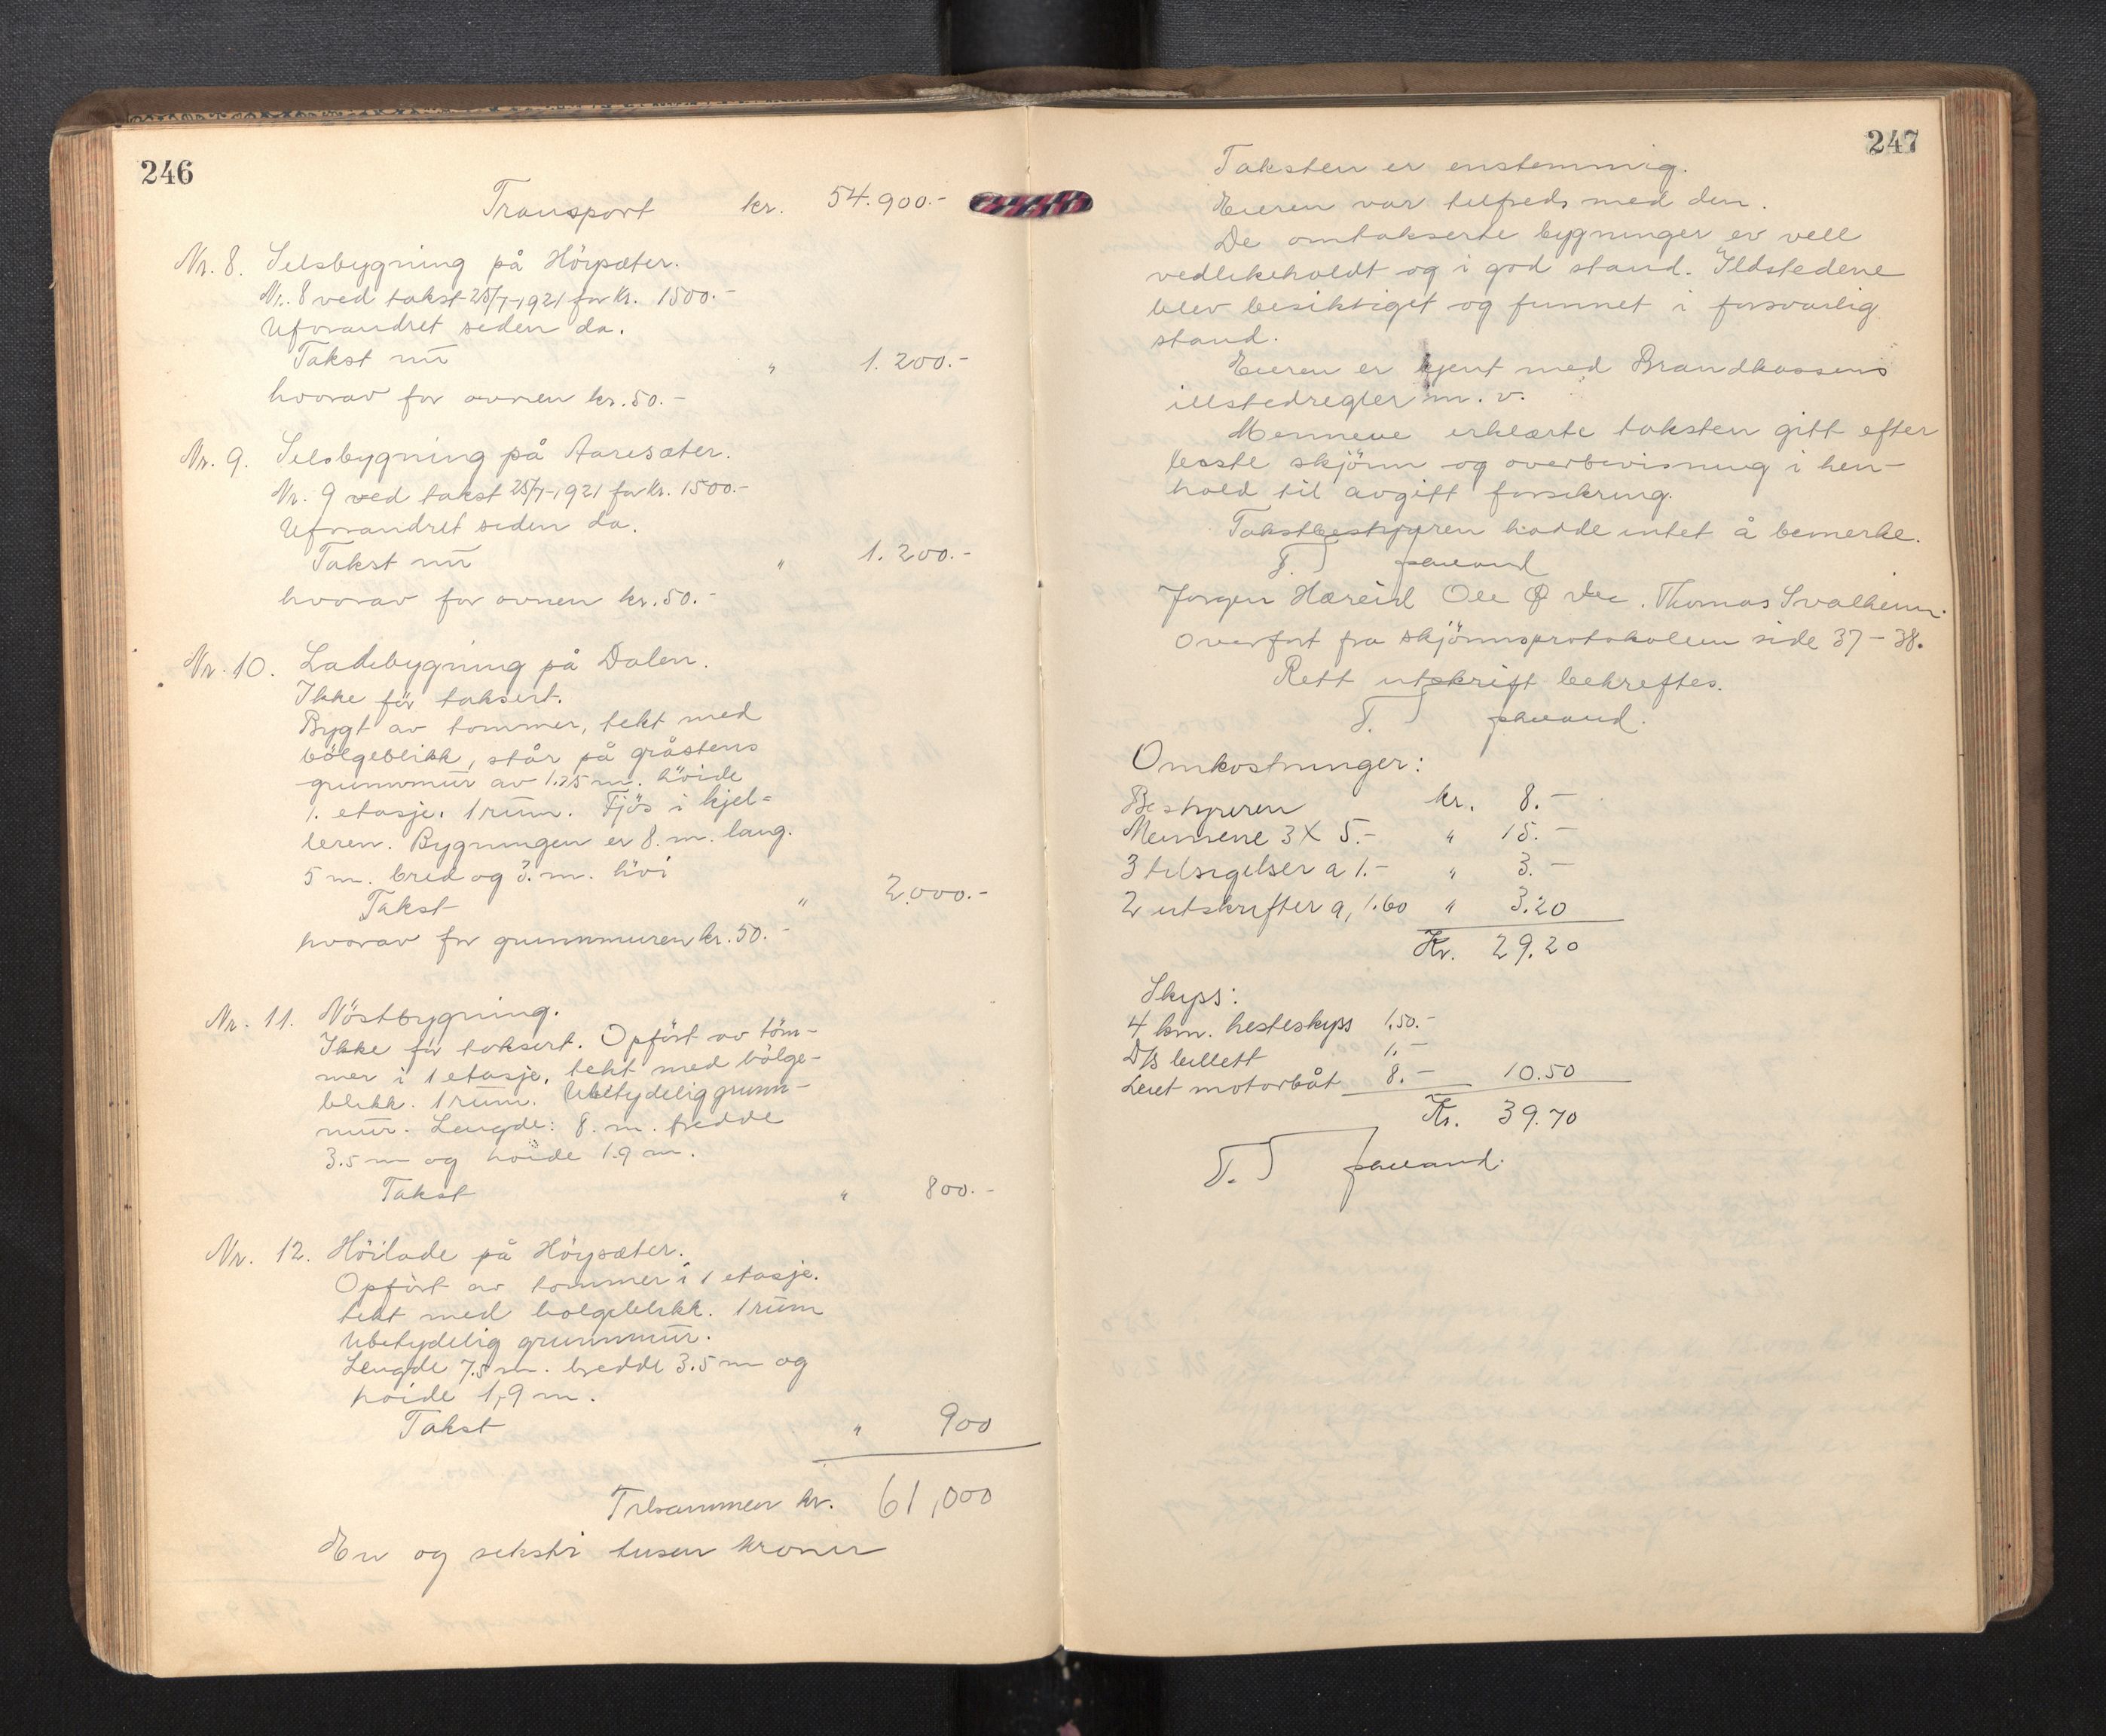 246
Transport kr. 54.900.-
Nr. 8. Selsbygning på Höysæter.
Nr. 8 ved takst 25/7-1921 for kr. 1500.-
Uforandret siden da.
Takst nu " 1.200.-
hvorav for ovnen kr. 50.-
Nr. 9. Selsbygning på Aaresæter.
Nr. 9 ved takst 25/7-1921 for kr. 1500.-
Uforandret siden da.
Takst nu " 1.200.-
hvorav for ovnen kr. 50.-
Nr. 10. Ladebygning på Dalen.
Ikke för taksert.
Bygt av tømmer, tekt med
bölgeblikk, står på gråstens
grunnmur av 1.25 m. höide
1. etasje. 1 rum. Fjös i kjel-
leren. Bygningen er 8. m. lang.
5 m. bred og 3. m. höi
Takst " 2.000.-
hvorav for grunnmuren kr. 50.-
Nr. 11. Nöstbygning.
Ikke för taksert. Opfört av töm-
mer i 1 etasje, tekt med bölge-
blikk. 1 rum. Ubetydelig grunn-
mur. Lengde: 8. m. bredde
3.5 m og höide 1.9 m.
Takst " 800.-
Nr. 12. Höilade på Höysæter.
Opfört av tømmer i 1 etasje.
tekt med bolgeblikk. 1 rum
Ubetydelig grunnmur.
Lengde 7.5 m. bredde 3.5 m og
höide 1,9 m.
Takst " 900
Tilsammen kr. 61,000
En og seksti tusen kroner
247
Taksten er enstemmig.
Eieren var tilfreds med den.
De omtakserte bygninger er vell
vedlikeholdt og i god stand. Ildstedene
blev besiktiget og funnet i forsvarlig
stand.
Eieren er kjent med Brandkassens
illstedregler m. v.
Mennene erklærte taksten gitt efter
beste skjönn og overbevisning i hen-
hold til avgitt forsikring.
Takstbestyreren hadde intet å bemerke.
T.
Jorgen Hæreid Ole Thomas Svalheim.
Overfort fra skjönnsprotokollen side 37-38.
Rett utskrift bekreftes.
T.
Omkostninger:
Bestyreren kr. 8.-
Mennene 3 X 5.- " 15.-
3 tilsigelser a 1.- " 3.-
2 utskrifter a, 1.60 " 3.20
Kr. 29.20
Skyss:
4 km. hesteskyss 1,50.-
D/S billett 1.-
Leiet motorbåt 8.- 10.50
Kr. 39.70
T.